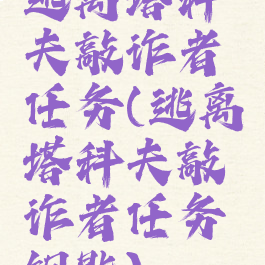 逃离塔科
夫敲诈者
任务(逃离
塔科夫敲
诈者任务
钥匙)